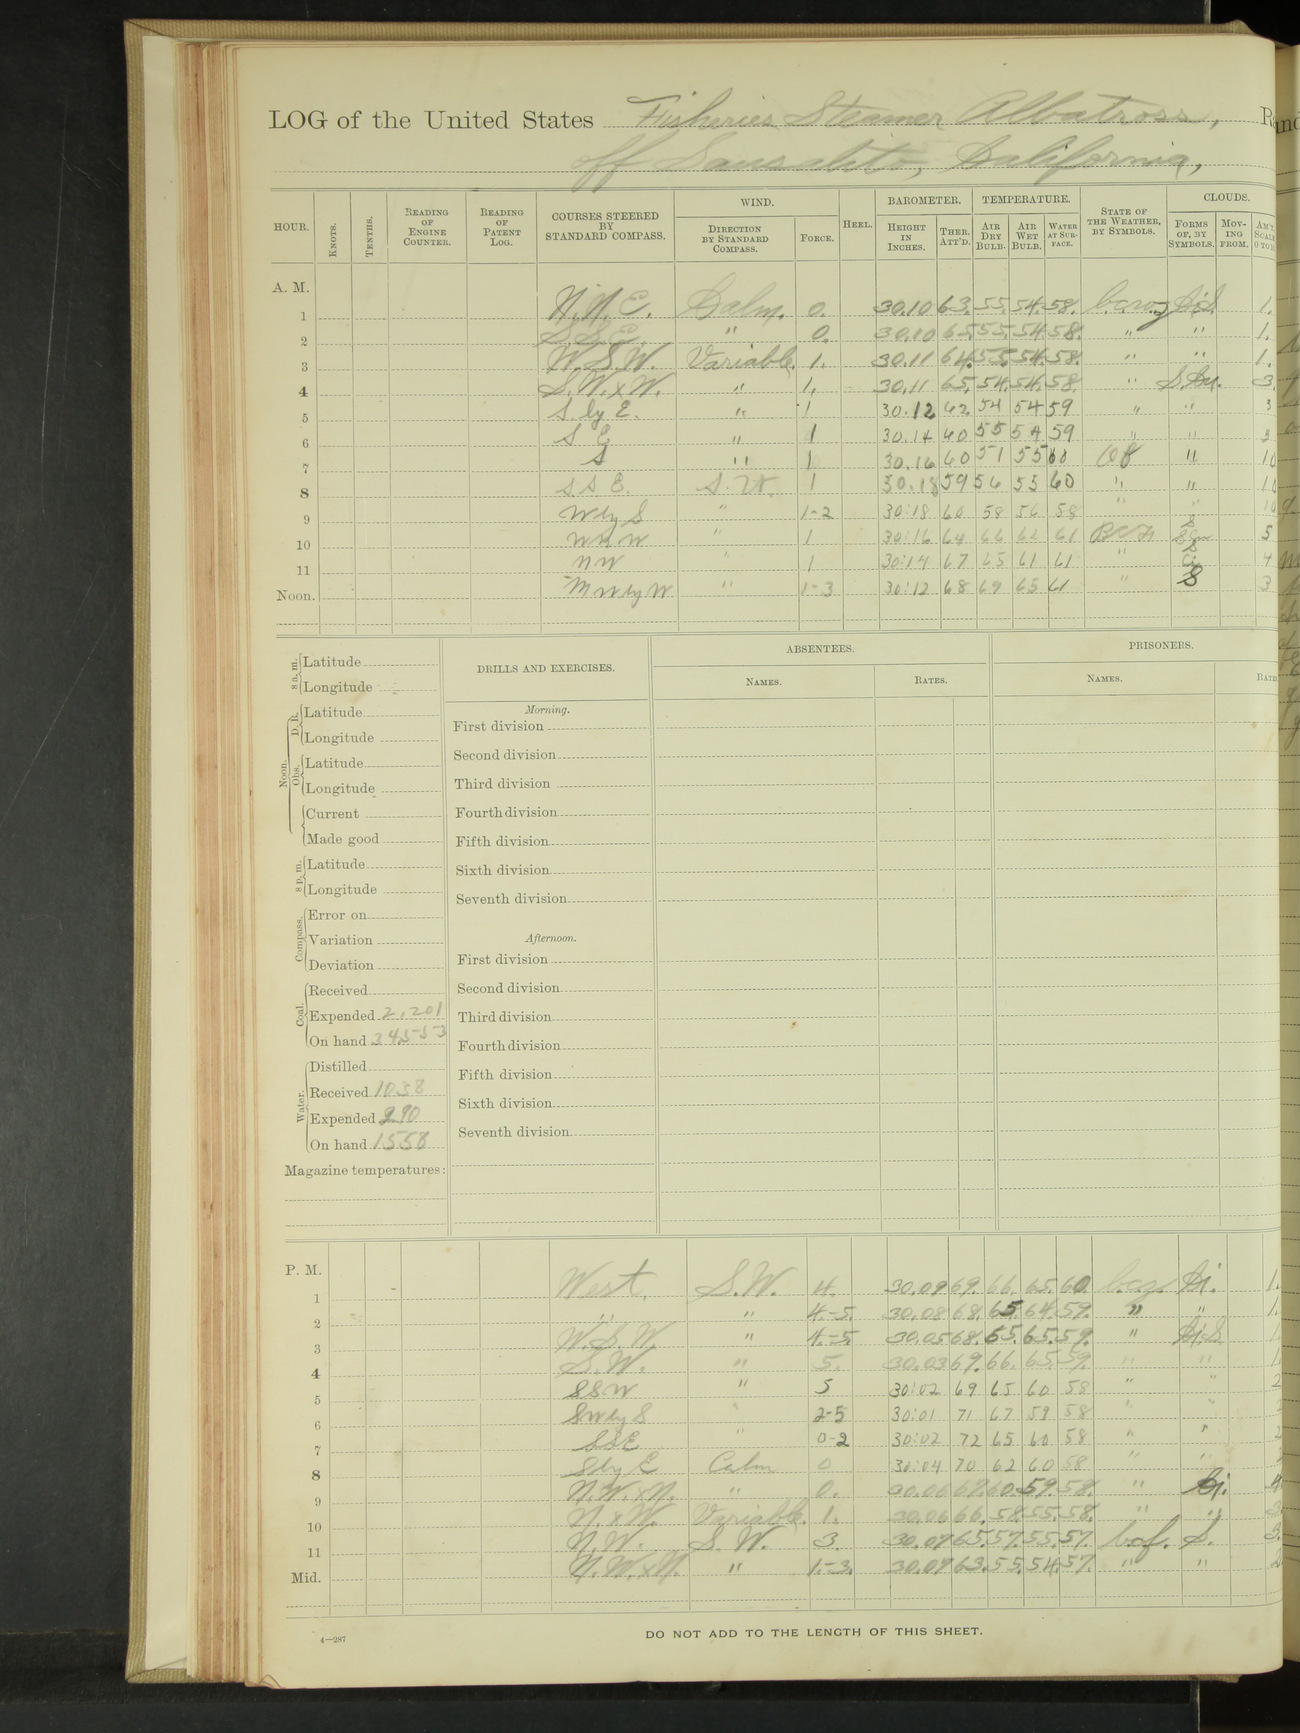 LOG of the United States Fisheries Steamer Albatross, R
off Sausalito, California,
HOUR. KNOTS. TENTHS. READING OF ENGINE COUNTER. READING OF PATENT LOG. COURSES STEERED BY STANDARD COMPASS. WIND. DIRECTION BY STANDARD COMPASS. FORCE. HEEL. BAROMETER. HEIGHT IN INCHES. THER. ATT'D. TEMPERATURE. AIR DRY BULB. AIR WET BULB. WATER AT SURFACE. STATE OF THE WEATHER, BY SYMBOLS. CLOUDS. FORMS OF, BY SYMBOLS. MOVING FROM. AM'T, SCALE 0 TO
A. M.
1 N.N.E. Calm. 0. 30.10 63. 55. 54. 58. 1.
2 S.S.E. " 0. 30.10 65. 55. 54. 58. " " 1.
3 W.S.W. Variable. 1. 30.11 64. 55. 54. 58. " " 1.
4 S.W.xW. " 1. 30.11 65. 54. 54. 58. " 3.
5 S. by E. " 1 30.12 62 54 54 59 " " 3
6 S E " 1 30.14 60 55 54 59 " " 3
7 S " 1 30.16 60 51 55 60 " 10
8 S S E. S. W. 1 30.18 59 56 55 60 " " 10
9 W by S " 1-2 30:18 60 58 56 58 " " 10
10 WNW " 1 30:16 64 66 62 61 5
11 NW " 1 30:14 67 65 61 61 " 4
Noon. " 1-3 30:12 68 69 65 61 " S 3
8 a. m. Latitude
Longitude
Noon. D. R. Latitude
Longitude
Obs. Latitude
Longitude
Current
Made good
8 p. m. Latitude
Longitude
Compass. Error on
Variation
Deviation
Coal. Received
Expended 2,201
On hand 345553
Water. Distilled
Received 1038
Expended 290
On hand 1558
Magazine temperatures:
DRILLS AND EXERCISES.
Morning.
First division
Second division
Third division
Fourth division
Fifth division
Sixth division
Seventh division
Afternoon.
First division
Second division
Third division
Fourth division
Fifth division
Sixth division
Seventh division
ABSENTEES.
NAMES. RATES.
PRISONERS.
NAMES. RATE
P. M.
1 West. S.W. 4. 30.09 69. 66. 65. 60. Ci. 1.
2 " " 4-5. 30.08 68. 65. 64. 59. " " 1.
3 W.S.W. " 4-5 30.05 68. 65. 65. 59. " Ci.S. 1.
4 S.W. " 5. 30.03 69. 66. 65. 59. " " 1.
5 SSW " 5 30:02 69 65 60 58 " " 2
6 SW by S " 2-5 30:01 71 67 59 58 " " 2
7 SSE " 0-2 30:02 72 65 60 58 " " 2
8 S by E Calm 0 30:04 70 62 60 58 " "
9 N.W.xN. " 0. 30.06 67. 60. 59. 58. " Ci. 4
10 N.xW. Variable. 1. 30.06 66. 58. 55. 58. " "
11 N.W. S.W. 3. 30.07 65. 57. 55. 57. S. 3.
Mid. N.W.xN. " 1-3. 30.07 63. 55. 54. 57. " "
4—287
DO NOT ADD TO THE LENGTH OF THIS SHEET.